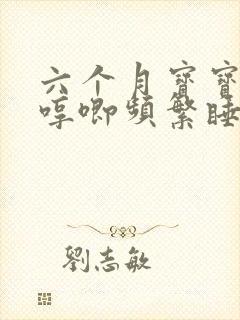 六个月寶寶
哼唧頻繁睡
劉志敏